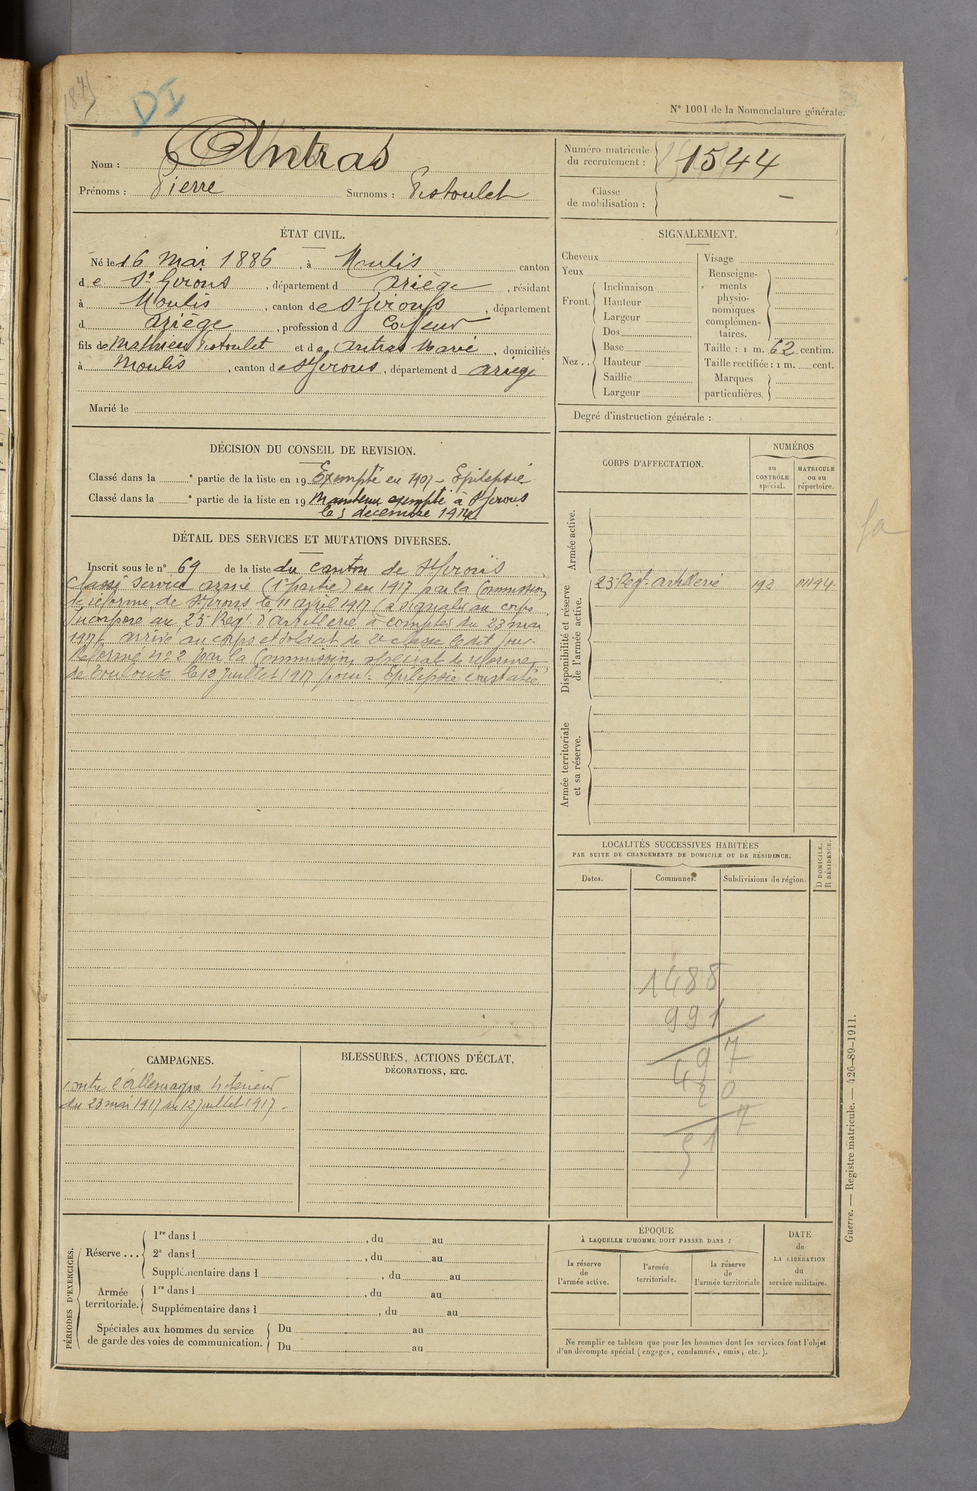 DI
N° 1001 de la Nomenclature générale.
Nom : Antras
Prénoms : Pierre Surnoms : Pistoulet
Numéro matricule du recrutement : 1544
Classe de mobilisation : —
ÉTAT CIVIL.
Né le 16 Mai 1886, à Moulis canton
de St Girons, département d Ariège, résidant
à Moulis, canton de St Girons, département
d Ariège, profession d Coiffeur
fils de Mathieu Pistoulet et d Antras Marie, domiciliés
à Moulis, canton de St Girons, département d Ariège
Marié le
SIGNALEMENT.
Cheveux
Yeux
Front.
Inclinaison
Hauteur
Largeur
Nez ..
Dos
Base
Hauteur
Saillie
Largeur
Visage
Renseigne-
ments
physio-
nomiques
complémen-
taires.
Taille : 1 m. 62 centim.
Taille rectifiée : 1 m. cent.
Marques
particulières.
Degré d'instruction générale :
DÉCISION DU CONSEIL DE REVISION.
Classé dans la e partie de la liste en 19 Exempté en 1907 - Epilepsie
Classé dans la e partie de la liste en 19 Maintenu exempté à St Girons
le 5 décembre 1914
DÉTAIL DES SERVICES ET MUTATIONS DIVERSES.
Inscrit sous le n° 69 de la liste du canton de St Girons
Classé service armé (1e partie) en 1917 par la Commission
de réforme de St Girons le 11 avril 1917 à signaler au corps
Incorporé au 23 Regt d'artillerie à compter du 23 mai
1917, arrivé au corps et soldat de 2e classe le dit jour.
Réformé n° 2 par la Commission spéciale de réforme
de Toulouse le 12 juillet 1917 pour Epilepsie constatée
CORPS D'AFFECTATION.
NUMÉROS
au
CONTRÔLE
spécial.
MATRICULE
ou au
répertoire.
Armée active.
Disponibilité et réserve
de l'armée active.
23 Régt artillerie 193 01194
Armée territoriale
et sa réserve.
LOCALITÉS SUCCESSIVES HABITÉES
PAR SUITE DE CHANGEMENTS DE DOMICILE OU DE RÉSIDENCE.
Dates.
Communes.
Subdivisions de région.
D DOMICILE.
R RÉSIDENCE.
1488
991
497
420
CAMPAGNES.
Contre l'Allemagne Intérieur
du 23 mai 1917 au 12 juillet 1917
BLESSURES, ACTIONS D'ÉCLAT,
DÉCORATIONS, ETC.
PÉRIODES D'EXERCICES.
Réserve ...
1re dans l , du au
2e dans l , du au
Supplémentaire dans l , du au
Armée
territoriale.
1re dans l , du au
Supplémentaire dans l , du au
Spéciales aux hommes du service
de garde des voies de communication.
Du au
Du au
ÉPOQUE
À LAQUELLE L'HOMME DOIT PASSER DANS :
la réserve
de
l'armée active.
l'armée
territoriale.
la réserve
de
l'armée territoriale
DATE
de
LA LIBÉRATION
du
service militaire.
Ne remplir ce tableau que pour les hommes dont les services font l'objet
d'un décompte spécial (engagés, condamnés, omis, etc.).
Guerre. — Registre matricule. — 426-89-1911.